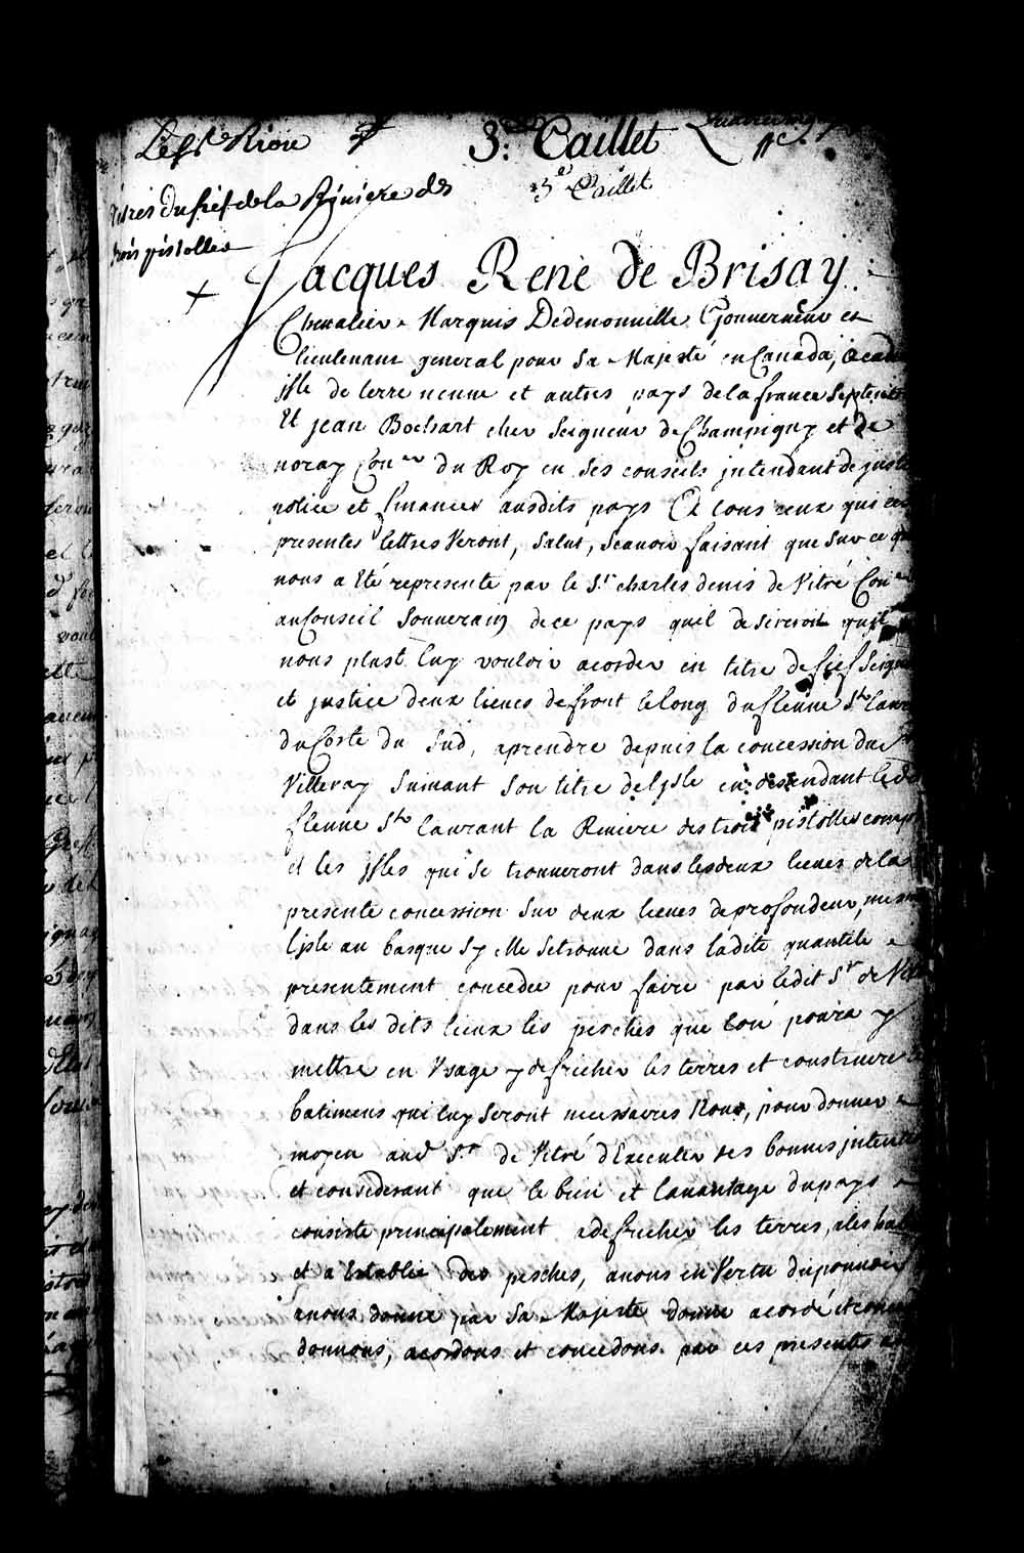 Le Sr Riou
3e. Caillet
3e Caillet
titres du fief de la Riviere des
trois pistolles
Jacques René de Brisay
Chevalier Marquis Dedenonville Gouverneur et
lieutenant general pour Sa Majesté en Canada, acad
isle de terre neuve et autres pays de la france Septent
Et jean Bochart cher Seigneur de Champigny et de
noray Con.er du Roy en Ses conseils jntendant de just
police et finances ausdits pays A tous ceux qui ces
presentes lettres Veront, Salut, Scavoir faisant que Sur ce q
nous a Eté representé par le S.r charles denis de Vitré Con.er
au Conseil Souverain de ce pays quil desireroit quil
nous plust luy vouloir acorder en titre de fief Seign
et justice deux lieues de front le long du fleuve St laur
du Coste du Sud, aprendre depuis la concession du Sr
Villeray Suivant Son titre de lisle en descendant le d
fleuve St laurant la Riviere des trois pistolles comp
et les isles qui Se trouveront dans les deux lieues de la
presente concession Sur deux lieues de profondeur, mesm
lisle au basque Sy elle Se trouve dans ladite quantité
presentement concedée pour faire par ledit Sr de Vit
dans les dits lieux les pesches que lon poura y
mettre en Vsage y defricher les terres et construire
batimens qui luy Seront necessaires Nous, pour donner
moyen aud Sr de Vitré dExecuter ses bonnes jntentio
et considerant que le bien et lavantage du pays
consiste principalement adefricher les terres, ales hab
et a Establir des pesches, avons en Vertu du pouvoir
anous donné par Sa Majesté donné acordé et conced
donnons, acordons et concedons par ces presentes